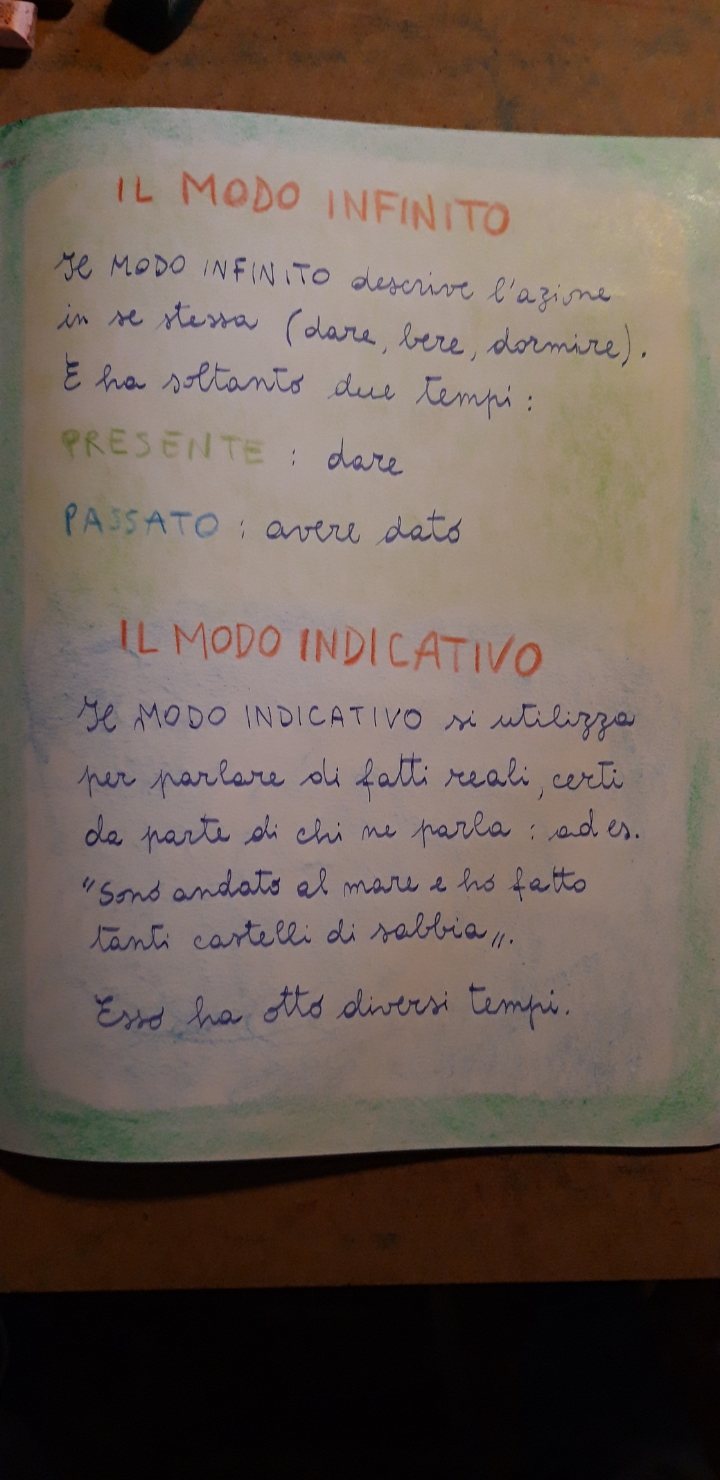 IL MODO INFINITO
Il MODO INFINITO descrive l'azione
in se stessa (dare, bere, dormire).
E ha soltanto due tempi:
PRESENTE : dare
PASSATO : avere dato
IL MODO INDICATIVO
Il MODO INDICATIVO si utilizza
per parlare di fatti reali, certi
da parte di chi ne parla : ad es.
"Sono andato al mare e ho fatto
tanti castelli di sabbia„.
Esso ha otto diversi tempi.